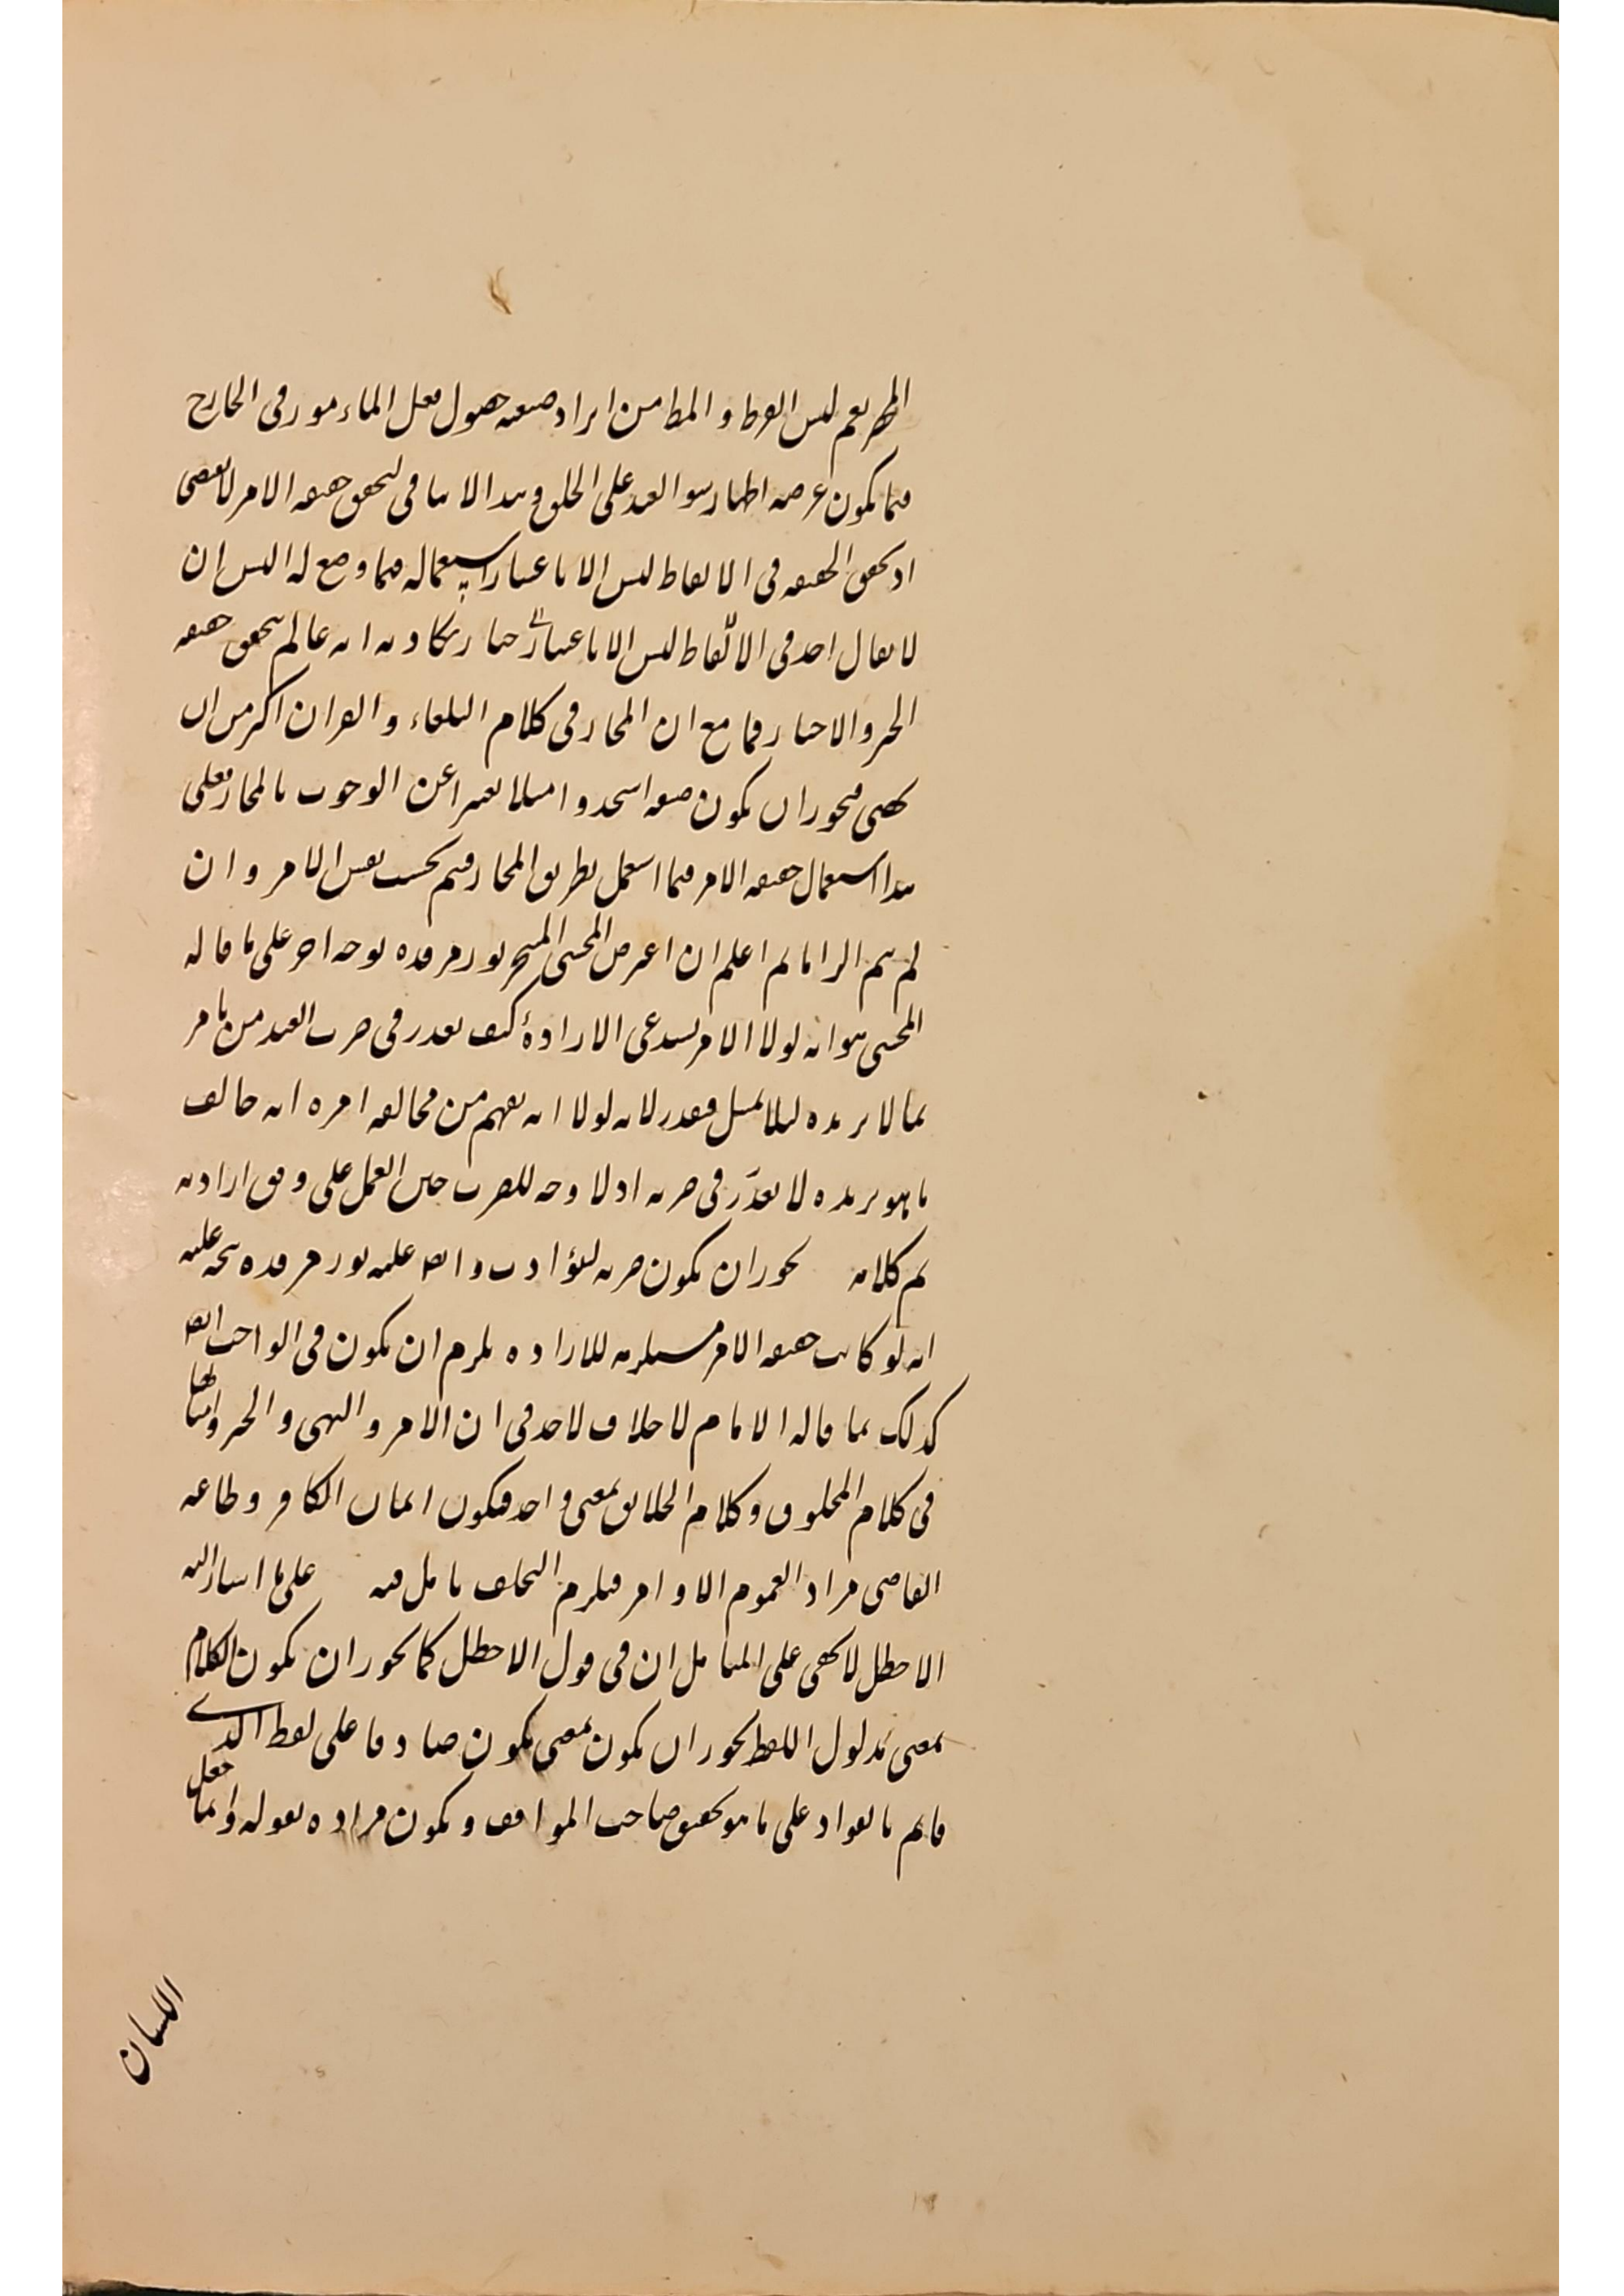 نعم ليس الغرض و المط من ايراد صيغه حصول فعل الماءمور فى الخارج
فيما يكون غرضه اظهار سوء العبد على الخلق و هذا لا ينافى لتحقق حقيقه الامر لا بمعنى
اذ تحقق الحقيقه فى الالفاظ ليس الا باعتبار استعماله فيما وضع له اليس ان
لا يقال احد فى الالفاظ ليس الا باعتبار انه عالم بتحقق حقيقه
الخبر و الاخبار فيها مع ان المجاز فى كلام البلغاء و القران اكثر من ان
يحصى فيجوز ان يكون صيغه اسجدوا مثلا تعبيرا عن الوجوب بالمجاز فعلى
هذا استعمال حقيقه الامر فيما استعمل بطريق المجاز فيتم بحسب نفس الامر و ان
لم يتم الزاما ثم اعلم ان اعترض المحشى نور مرقده بوجه اخر على ما قاله
المحشى هو انه لولا الامر يستدعى الارادة كيف يعذر فى ضرب العبد من يامر
بما لا يريده ليلا يمتثل فيعذر لانه لولا انه يفهم من مخالفه امره انه خالف
ما هو يريده لا يعذر فى ضربه اذ لا وجه للضرب حين العمل على وفق ارادته
ثم كلامه يجوز ان يكون ضربه و ايض عليه نور مرقده يتجه عليه
انه لو كانت حقيقه الامر مستلزمه للاراده يلزم ان يكون فى الواجب ايض
كذلك بما قاله الامام لا خلاف لاحد فى ان الامر و النهى و الخبر و امثالها
فى كلام المخلوق و كلام الخالق بمعنى واحد فيكون ايمان الكافر و طاعه
العاصى مراد العموم الاوامر فيلزم التخلف تامل فيه على ما اشار اليه
الاخطل لا يخفى على المتامل ان فى قول الاخطل كما يجوز ان يكون الكلام
بمعنى مدلول اللفظ يجوز ان يكون بمعنى يكون صادقا على لفظ الذى
قايم بالفواد على ما هو تحقيق صاحب المواقف و يكون مراده بقوله و انما جعل
اللسان